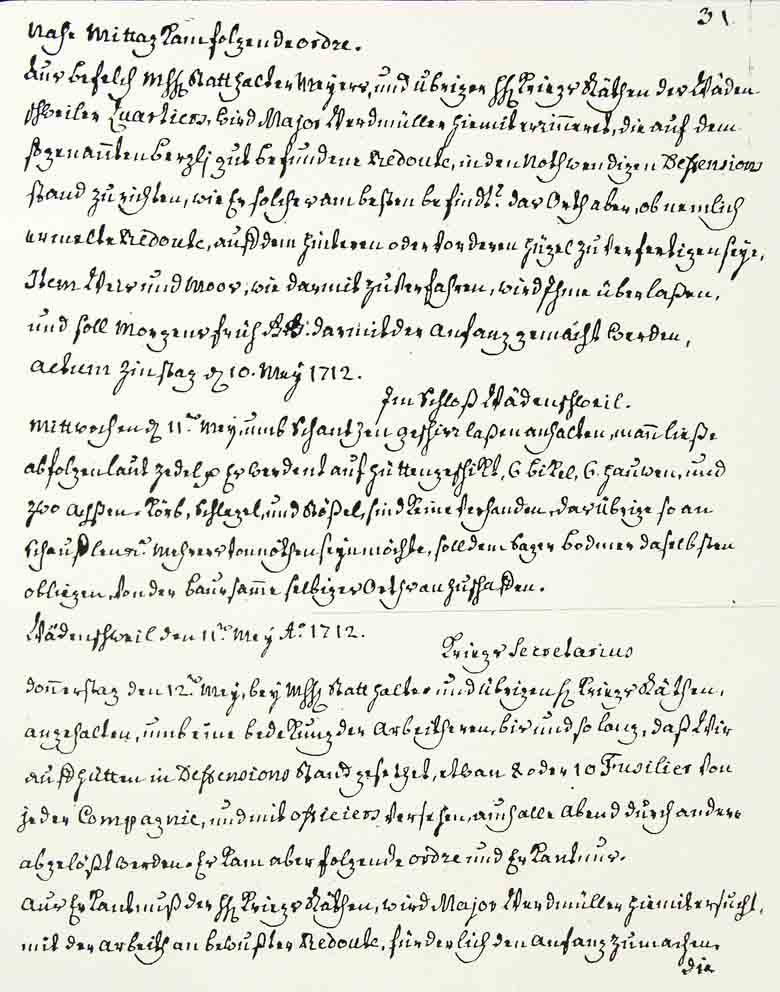 31.
Nahe Mittag kam folgende ordre.
Aus befelch MhH Statthalter Meyers, und übriger hH Kriegs Räthen des Wäden-
schweiler Quartiers, wird Major Werdmüller hiemit erinneret, die auf dem
sogenannten berglj gut befundene Redoute, in den Nothwendigen Defension
stand zu richten, wie Er solches am besten befindt. das Orth aber, ob nemlich
ermelte Redoute, auf dem hinteren oder vorderen hügel zu verfertigen seye,
Item Wers und Moos, wie darmit zu verfahren, wird Ihme überlaßen,
und soll Morgens früh darmit der Anfang gemacht werden,
Actum Zinstag den 10. Mey 1712.
Im Schloß Wädenschweil.
Mittwochen den 11.ten Mey, umb Schantzen geschirr laßen anhalten, mann ließe
abfolgen laut zedel Er werdent auf hütten geschikt, 6 bikel, 6. hauwen, und
zwo Achßen. Körb, Schlegel, und Stößel, sind keine verhanden, das übrige so an
Schauflen Mehrers vonnöthen seyn möchte, soll dem bodmer daselbsten
obliegen, von der baursamme selbiger Orthen anzuschaffen.
Wädenschweil den 11.ten Mey Ao. 1712.
Kriegs Secretarius
Donnerstag den 12.ten Mey, bey MhH Statthalter und übrigen hH Kriegs Räthen,
angehalten, umb eine bedekung der Arbeitheren, bis und so lang, daß Wir
auf hütten in Defensions Stand gesetzet, etwan 8 oder 10 Fusilier von
jeder Compagnie, und mit officiers versehen, auch alle Abend durch andere
abgelößt werden. Es kam aber folgende ordre und Erkantnus.
Aus Erkantnuß der hH Kriegs Räthen, wird Major Werdmüller hiemit ersucht,
mit der Arbeith an bewußter Redoute, fürderlich den Anfang zu machen,
die